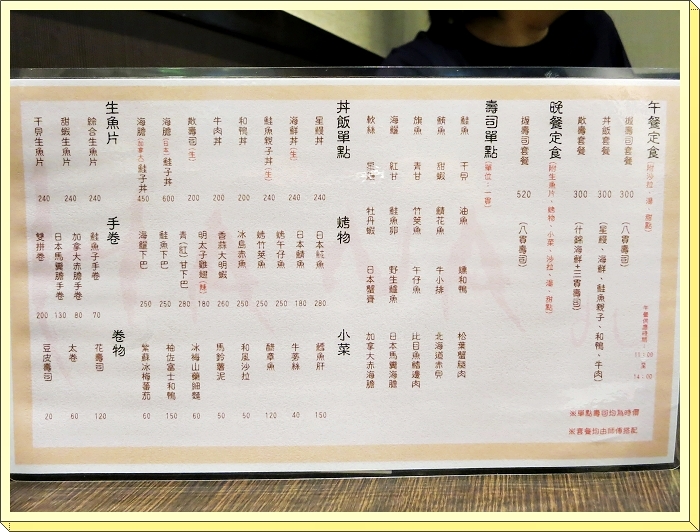 午餐定食(附沙拉、湯、甜點)
握壽司套餐 300 (八貫壽司)
丼飯套餐 300 (星鰻、海鮮、鮭魚親子、和鴨、牛肉)
散壽司套餐 300 (什錦海鮮+三貫壽司)
午餐供應時間:
11:00
至
14:00
晚餐定食(附生魚片、烤物、小菜、沙拉、湯、甜點)
握壽司套餐 520 (八貫壽司)
※單點壽司均為時價
※套餐均由師傅搭配
壽司單點(單位:一貫)
鮭魚 干貝 油魚 燻和鴨 松葉蟹腿肉
鮪魚 甜蝦 鯖花魚 牛小排 北海道赤貝
旗魚 青甘 竹筴魚 午仔魚 比目魚鰭邊肉
海鱺 紅甘 鮭魚卵 野生鱸魚 日本馬糞海膽
軟絲 星鰻 牡丹蝦 日本蟹膏 加拿大赤海膽
丼飯單點
星鰻丼 240
海鮮丼(生) 240
鮭魚親子丼(生) 240
和鴨丼 200
牛肉丼 200
散壽司(生) 200
海膽(日本)鮭子丼 600
海膽(加拿大)鮭子丼 450
烤物
日本魟魚 280
日本鯖魚 180
烤午仔魚 250
烤竹筴魚 250
冰島赤魚 250
香蒜大明蝦 260
明太子雞翅(辣) 180
青(紅)甘下巴 280
鮭魚下巴 250
海鱺下巴 250
小菜
鱈魚肝 150
牛蒡絲 40
醋章魚 120
和風沙拉 50
馬鈴薯泥 50
冰梅山藥細麵 60
柚佐富士和鴨 150
紫蘇冰梅番茄 60
生魚片
綜合生魚片 240
甜蝦生魚片 240
干貝生魚片 240
手卷
鮭魚子手卷 70
加拿大赤膽手卷 80
日本馬糞膽手卷 130
雙拼卷 200
卷物
花壽司 120
太卷 60
豆皮壽司 20